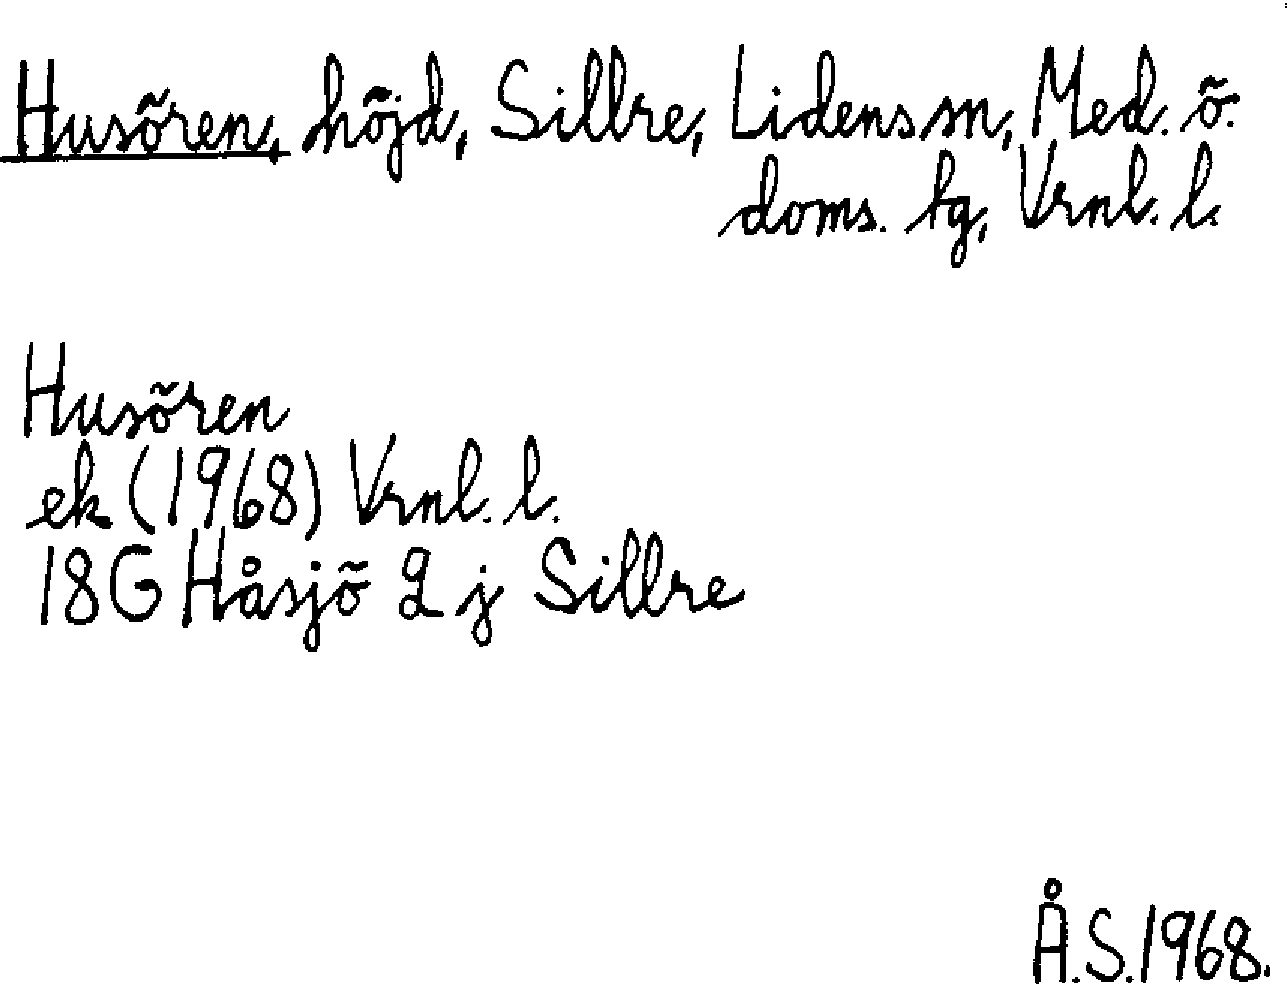 Husören, höjd, Sillre, Lidens sn, Med. ö.
doms. lg, Vrnl. l.
Husören
ek (1968) Vrnl. l.
18G Håsjö 2 j Sillre
Å.S. 1968.